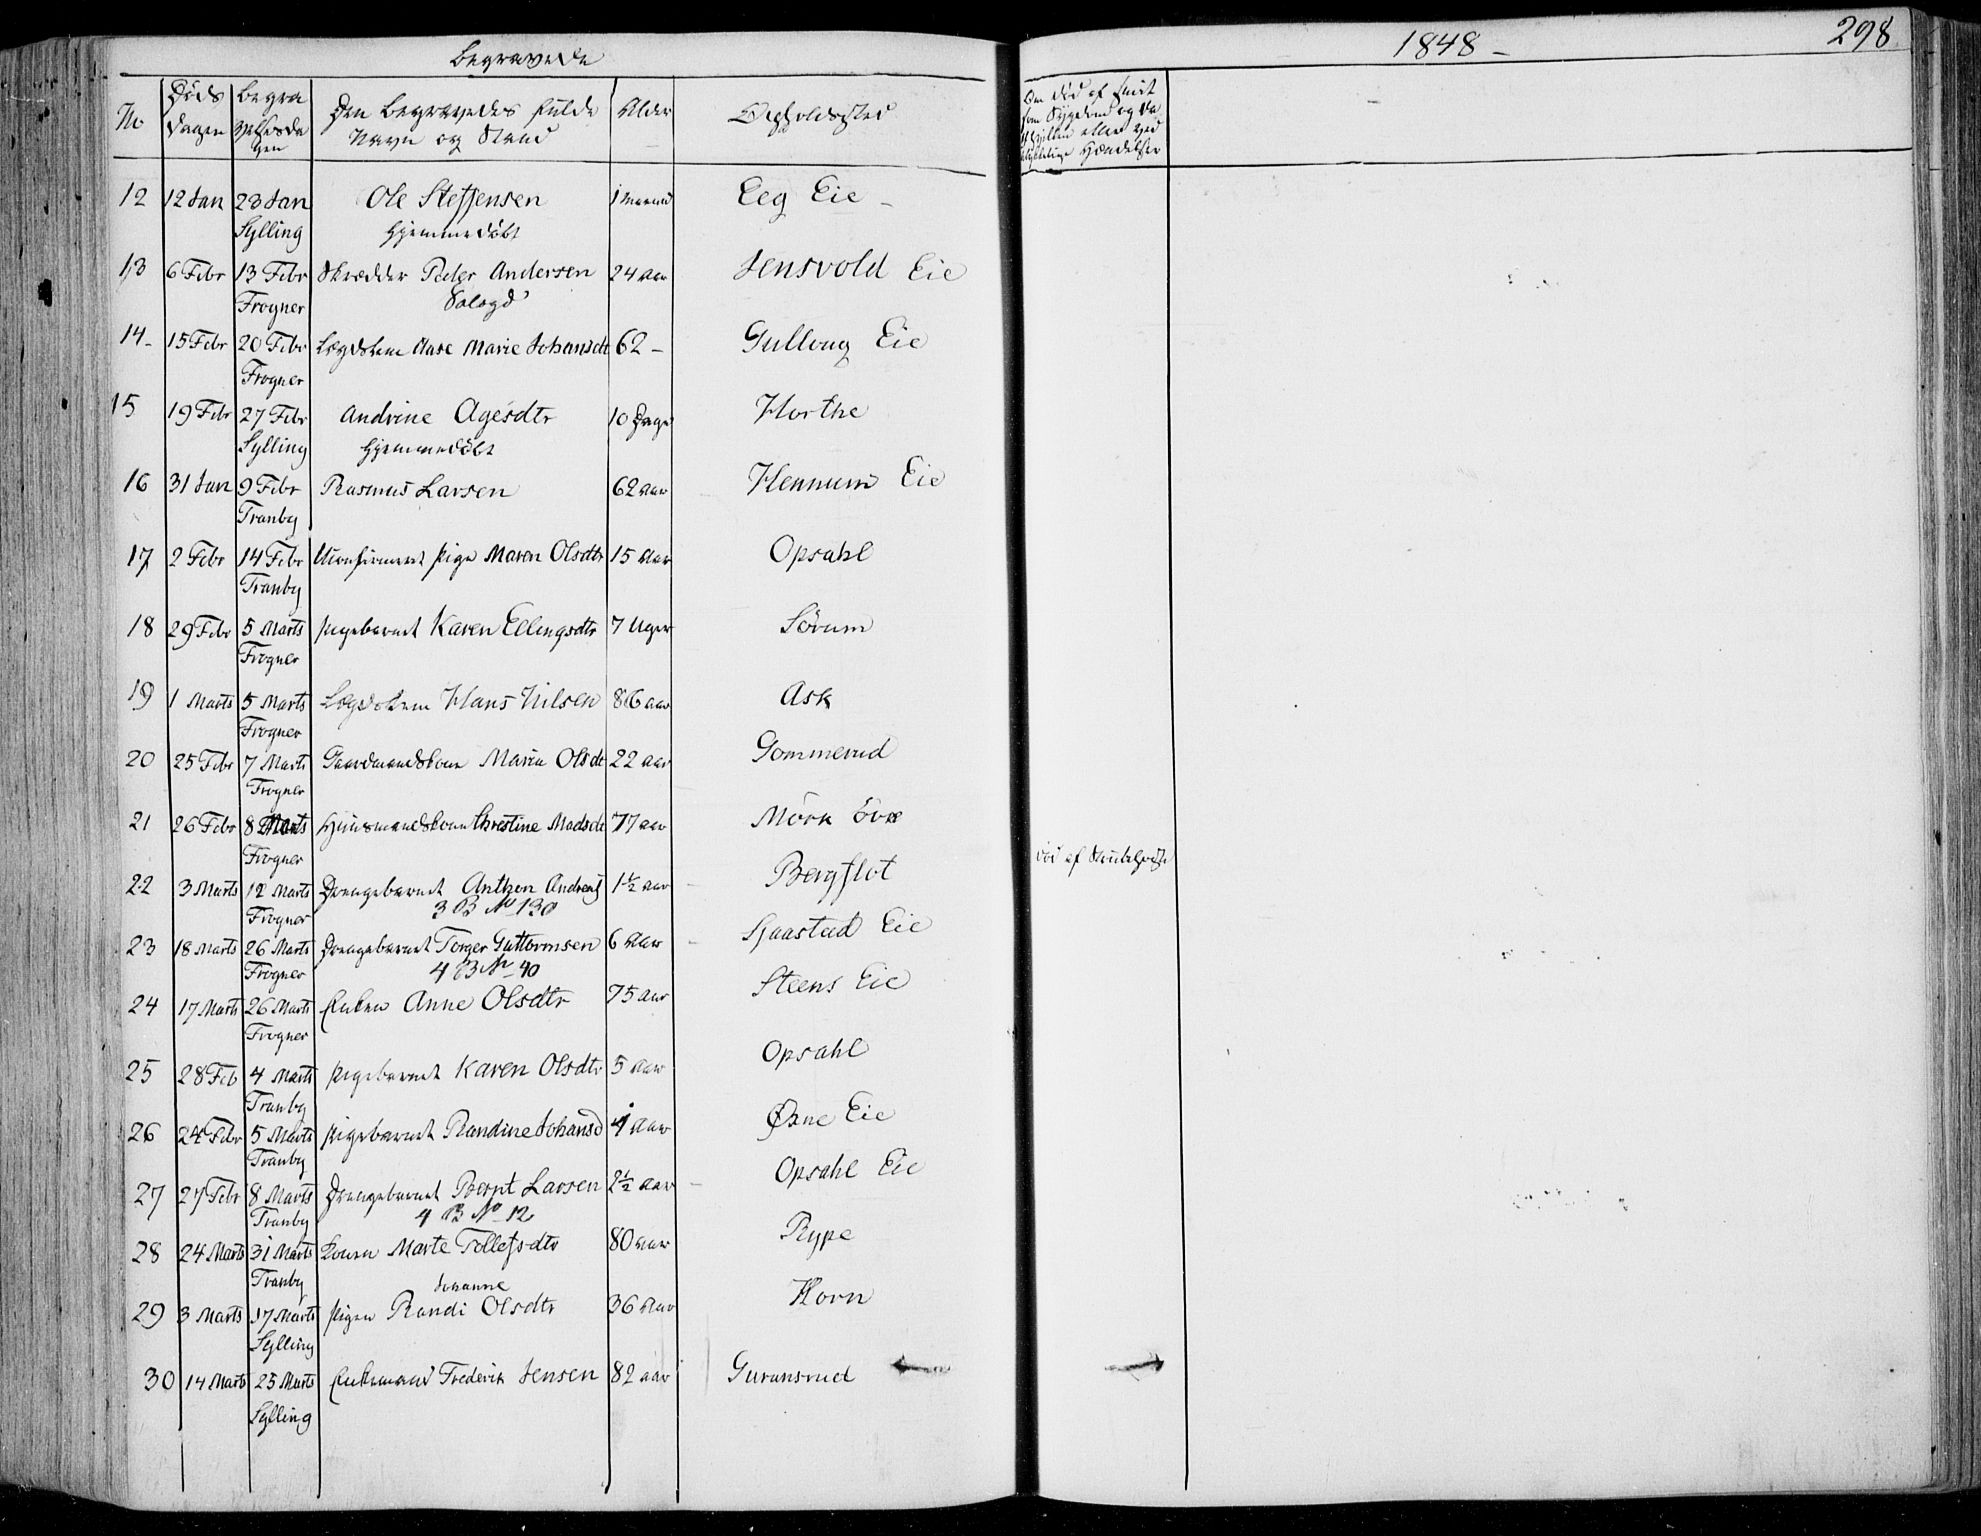 Begravede
1848 –
298
No
Døds Dagen
Begravelsesdagen
Den Begravedes fulde Navn og Stand
Alder
Opholdssted
Om død af smit
som Sygdom og
eller ved
ulykkelige Hændelser
12 12 Jan 23 Jan Ole Steffensen 1 Maaned Eeg Eie –
Sylling Hjemmedøbt
13 6 Febr 13 Febr Skrædder Peder Andersen 24 Aar Jensvold Eie
Frogner
14 – 15 Febr 20 Febr Lægdslem Aase Marie Johansdt 62 – Gulloug Eie
Frogner
15 19 Febr 27 Febr Andrine Agesdtr 10 Dage Horthe
Sylling Hjemmedøbt
16 31 Jan 9 Febr Rasmus Larsen 62 Aar Hennum Eie
Tranby
17 2 Febr 14 Febr Uconfirmeret Pige Maren Olsdtr 15 Aar Opsahl
Tranby
18 29 Febr 5 Marts Pigebarnet Karen Ellingsdtr 7 Uger Sørum
Frogner
19 1 Marts 5 Marts Lægdslem Hans Nilsen 86 aar Ask
Frogner
20 25 Febr 7 Marts Gaardmandskone Maria Olsdt 22 aar Gommerud
Frogner
21 26 Febr 8 Marts Huusmandskone Christine Madsdt 77 aar Mörk övre
Frogner
død af
22 3 Marts 12 Marts Drengebarnet Anthon Andreas 1½ aar – Bergflot
Frogner 3 B No 130
23 18 Marts 26 Marts Drengebarnet Torger Guttormsen 6 Aar – Sjaastad Eie
Frogner 4 B No 40
24 17 Marts 26 Marts Enken Anne Olsdtr 75 Aar Steens Eie
Frogner
25 28 Feb 4 Marts Pigebarnet Karen Olsdtr 5 Aar Opsahl
Tranby
26 24 Febr 5 Marts Pigebarnet Randine Johansd 4 Aar Øxne Eie
Tranby
27 27 Febr 8 Marts Drengebarnet Bernt Larsen 2½ Aar – Opsahl Eie
Tranby 4 B No 12
28 24 Marts 31 Marts Konen Marte Tollefsdtr 80 Aar Rype
Tranby
Johanne
29 3 Marts 17 Marts Pigen Randi Olsdtr 36 Aar Horn
Sylling
30 14 Marts 25 Marts Enkemand Frederik Jensen 82 aar Guransrud
Sylling